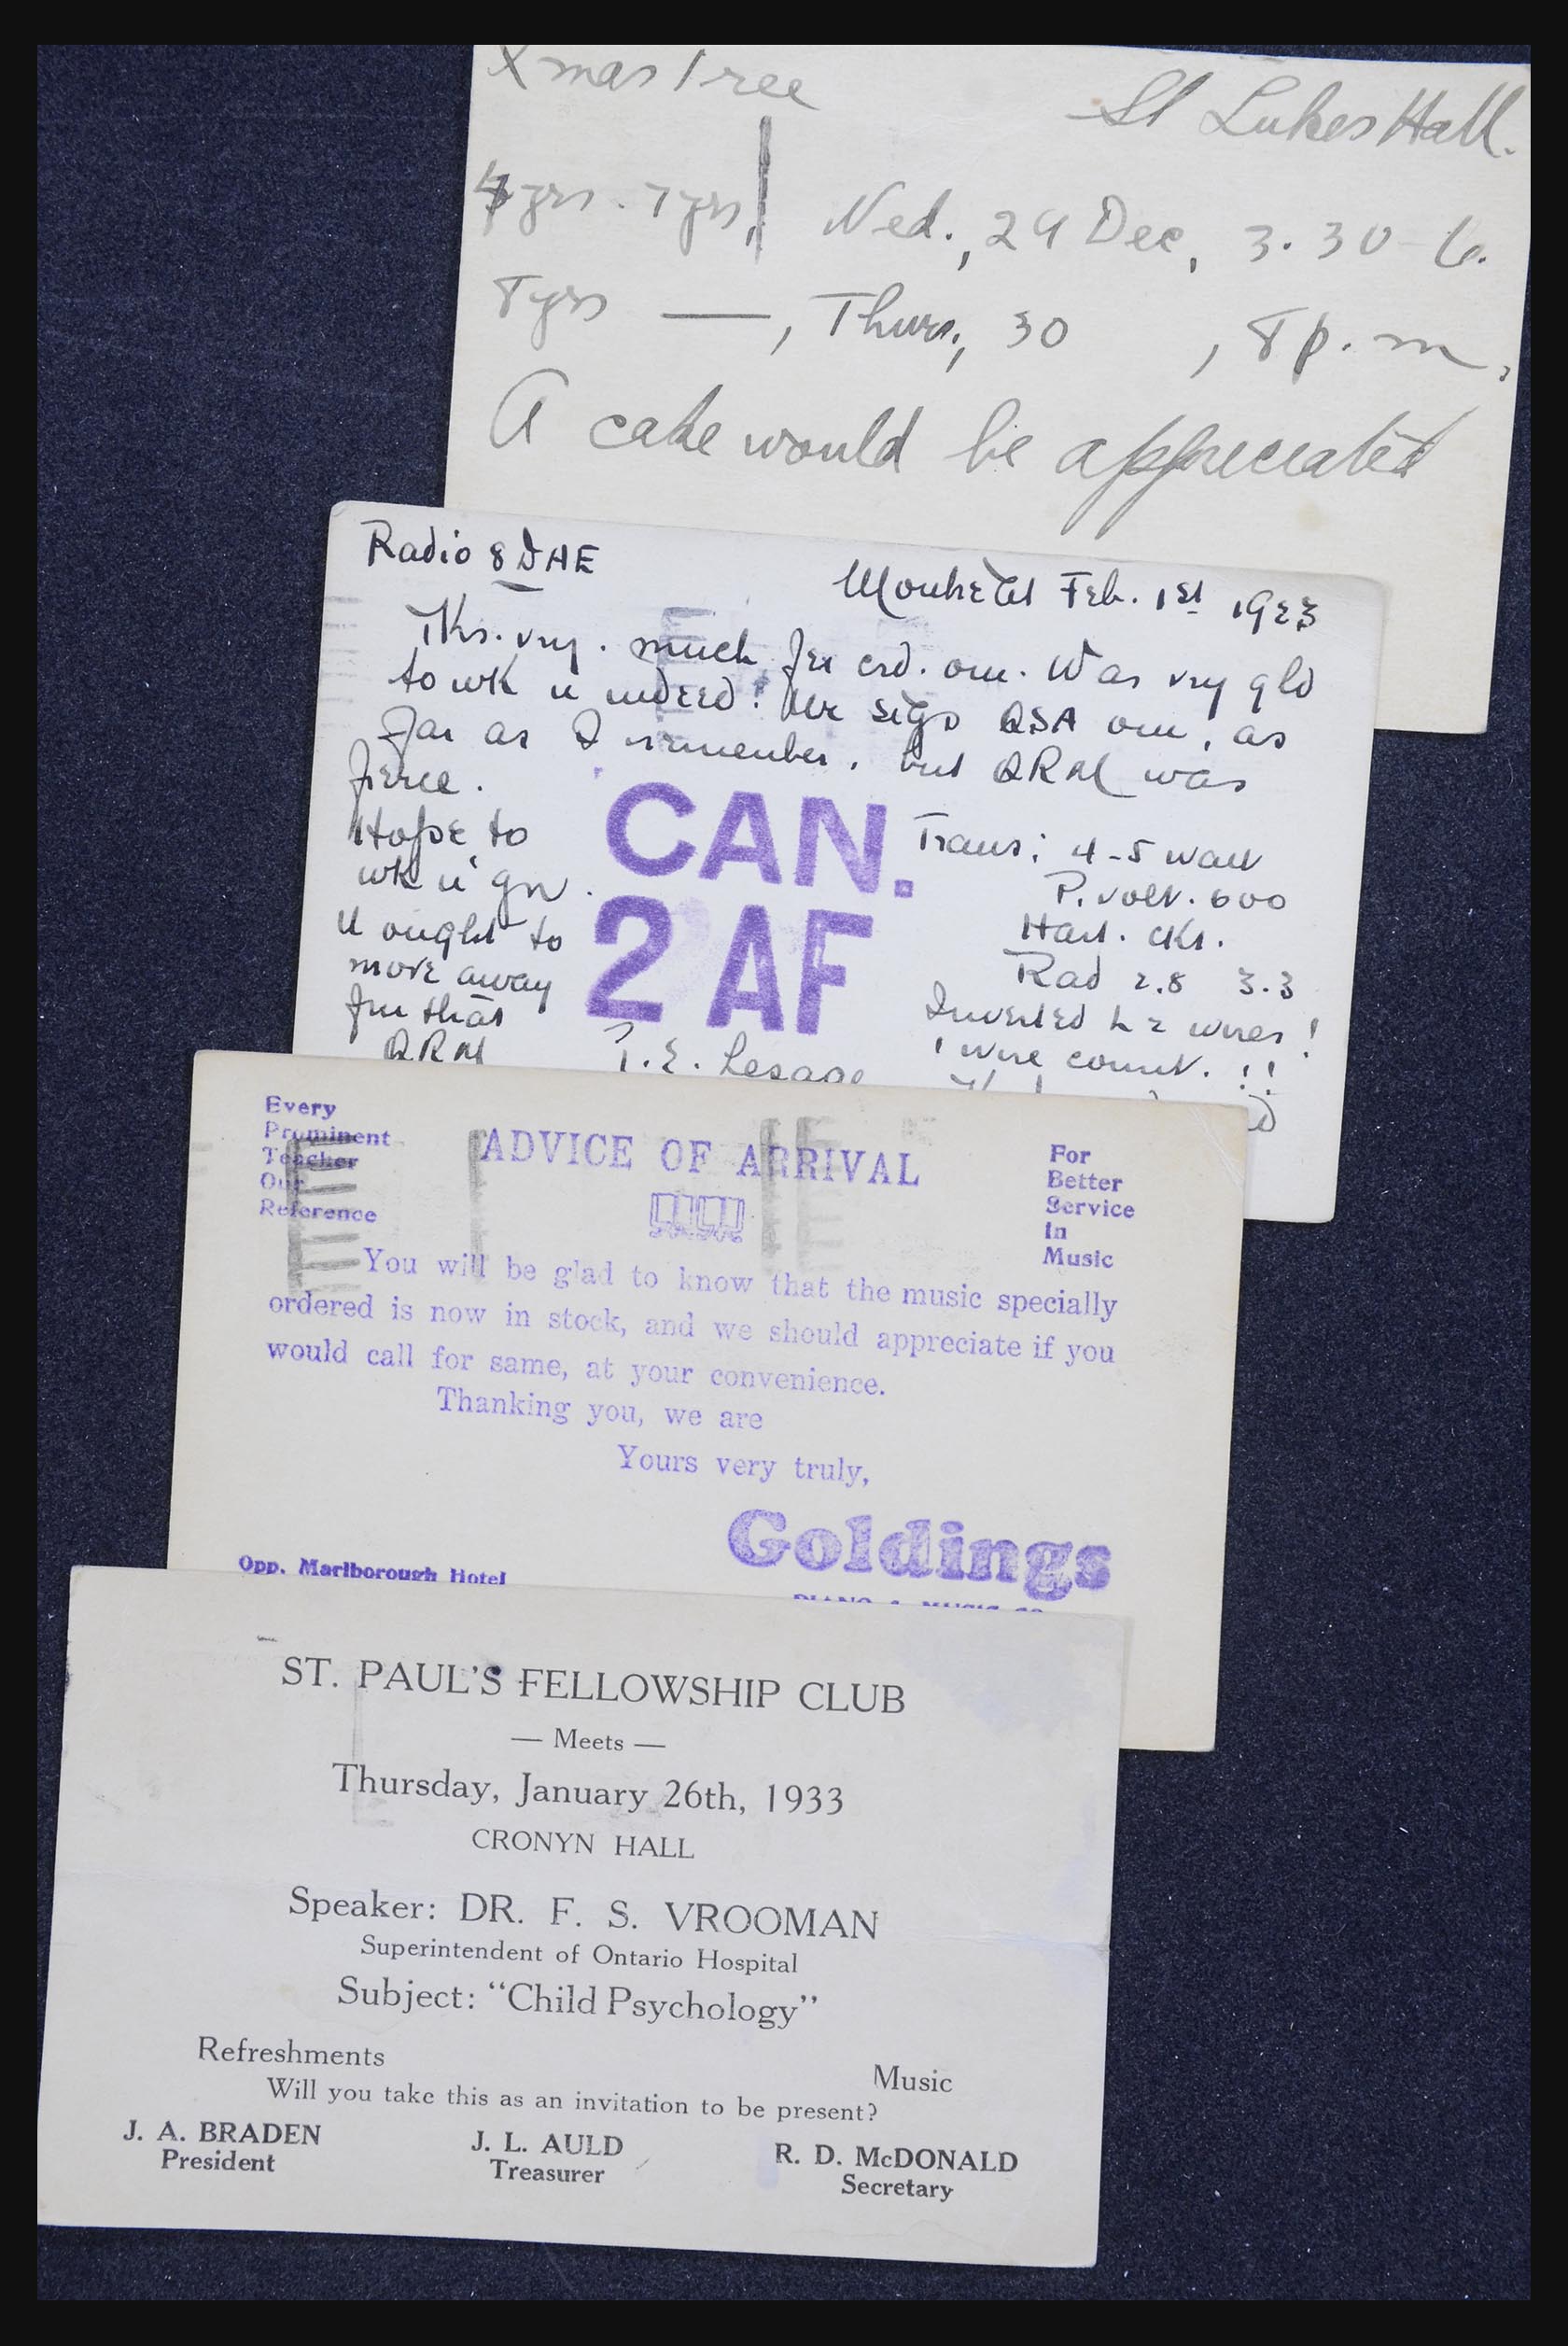 Xmas Tree St Lukes Hall.
4yrs. 7yrs, Wed., 29 Dec, 3.30-6.
8yrs —, Thurs, 30 , 8 p.m,
A cake would be appreciated
Radio 8 DAE
Montreal Feb. 1st 1923
Tks. vry. much fer crd. om. Was vry gld
to wk u indeed! Ur sigs QSA om, as
far as I remember, but QRM was
fierce.
Hope to
wk u gn.
U ought to
move away
fm that
QRM
CAN.
2 AF
Trans: 4-5 watt
P. volt. 600
Hart. ckt.
Rad 2.8 3.3
Inverted L 2 wires!
1 wire count. !!
T. E. Lesage
Every
Prominent
Teacher
Our
Reference
ADVICE OF ARRIVAL
For
Better
Service
In
Music
You will be glad to know that the music specially
ordered is now in stock, and we should appreciate if you
would call for same, at your convenience.
Thanking you, we are
Yours very truly,
Goldings
Opp. Marlborough Hotel
PIANO & MUSIC CO
ST. PAUL'S FELLOWSHIP CLUB
— Meets —
Thursday, January 26th, 1933
CRONYN HALL
Speaker: DR. F. S. VROOMAN
Superintendent of Ontario Hospital
Subject: "Child Psychology"
Refreshments Music
Will you take this as an invitation to be present?
J. A. BRADEN J. L. AULD R. D. McDONALD
President Treasurer Secretary